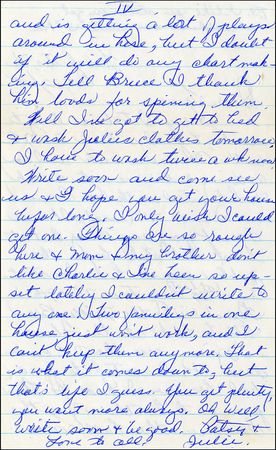 IV
and is getting a lot of plays
around in here, but I doubt
if it will do any chart mak-
ing. Tell Bruce I thank
him loads for spinning them
Well I've got to get to bed
& wash Julie's clothes tomorrow.
I have to wash twice a wk now
Write soon and come see
us & I hope you get your house
before long. I only wish I could
get one. Things are so rough
here & Mom & my brother don't
like Charlie & I've been so up-
set lately I couldn't write to
any one. Two families in one
house just won't work, and I
can't keep them anymore. That
is what it comes down to, but
that's life I guess. You get plenty,
you want more always. Oh Well
write soon & be good. Patsy &
Love to all. Julie.